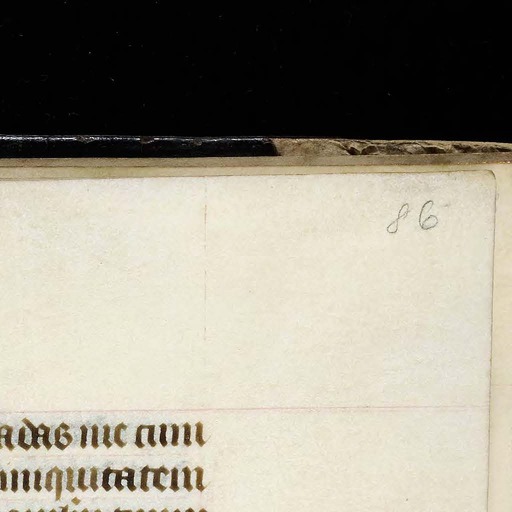 86
adas me cum
iniquitatem